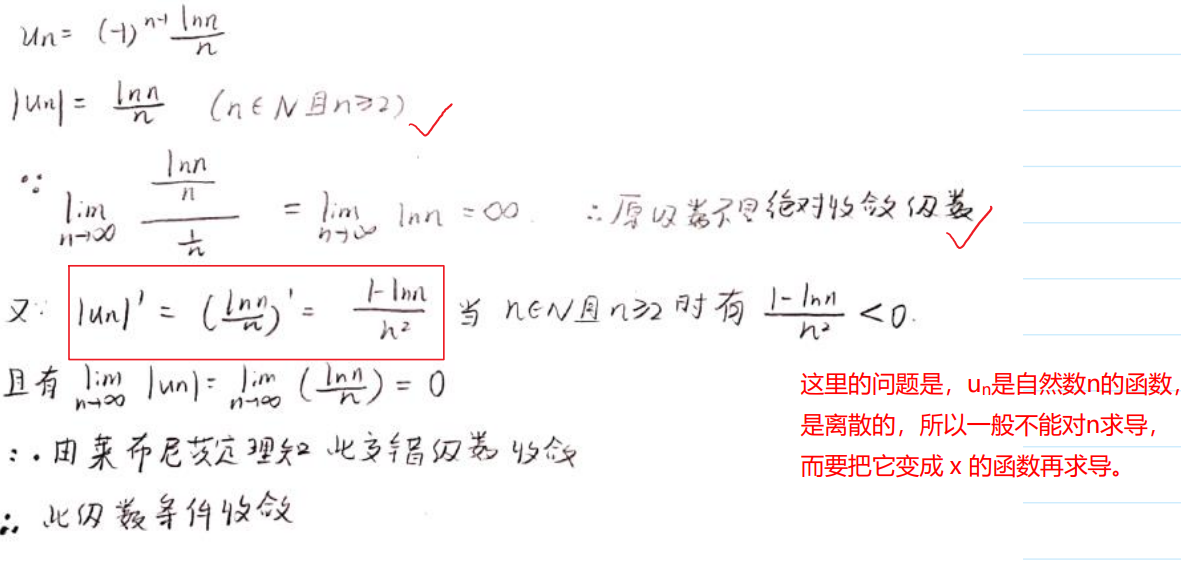 un = (-1)^{n-1} \frac{lnn}{n}
|un| = \frac{lnn}{n} (n∈N且n≥2)
∵ \lim_{n→∞} \frac{\frac{lnn}{n}}{\frac{1}{n}} = \lim_{n→∞} lnn = ∞. ∴原级数不是绝对收敛级数
又∵ |un|' = (\frac{lnn}{n})' = \frac{1-lnn}{n^2} 当 n∈N且n≥2时有 \frac{1-lnn}{n^2} < 0.
且有 \lim_{n→∞} |un| = \lim_{n→∞} (\frac{lnn}{n}) = 0
∴由莱布尼茨定理知此交错级数收敛
∴此级数条件收敛
这里的问题是，un是自然数n的函数，
是离散的，所以一般不能对n求导，
而要把它变成 x 的函数再求导。